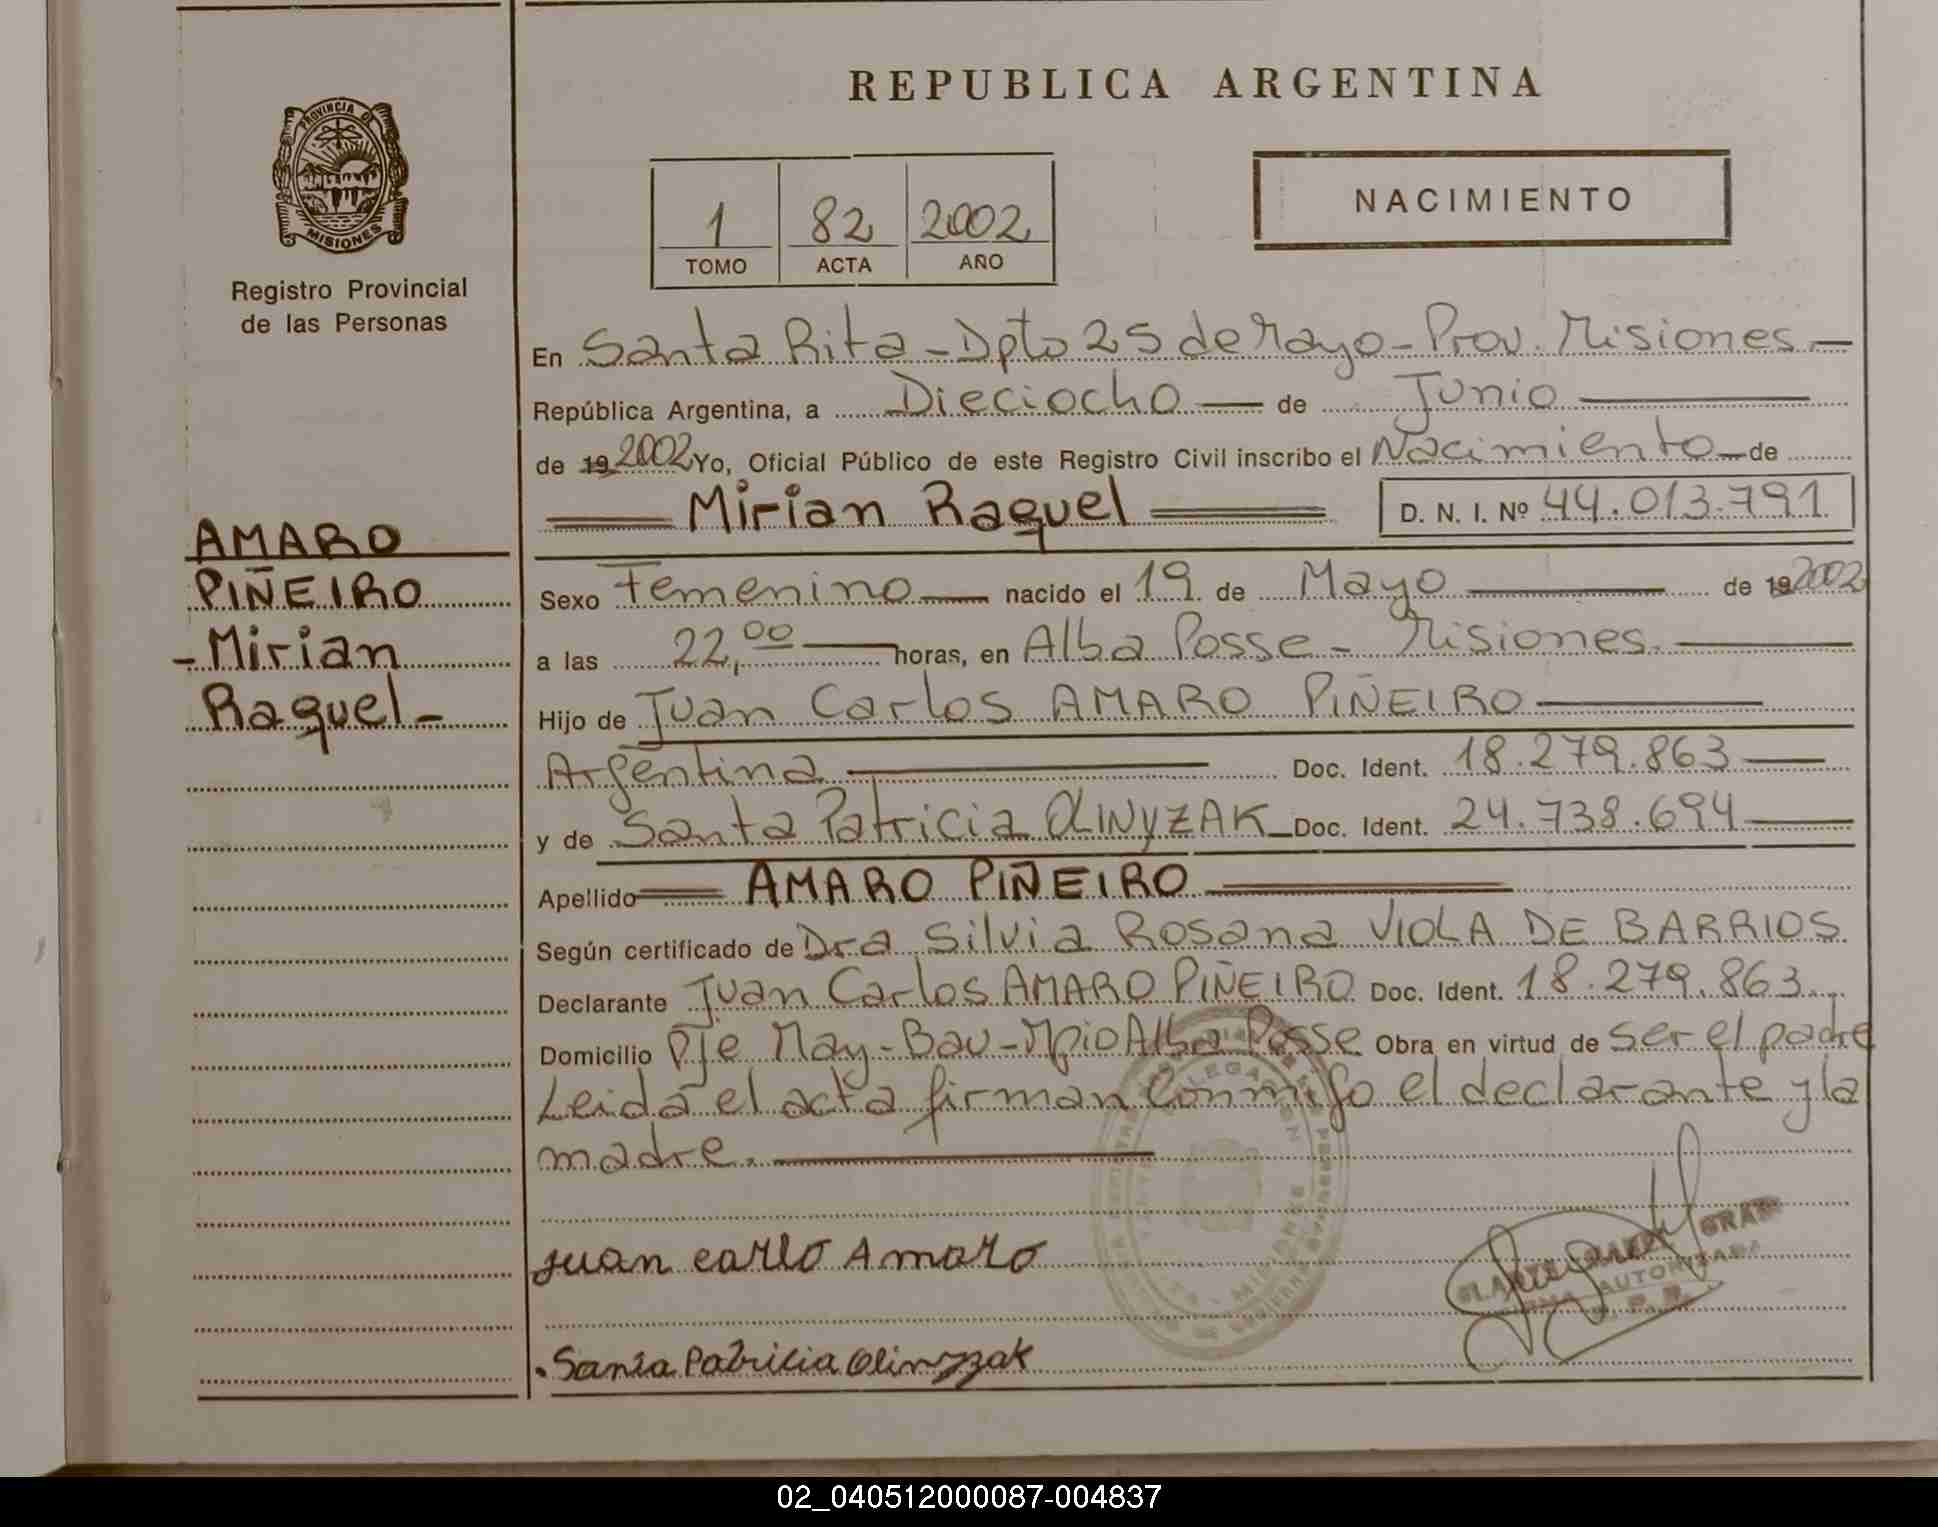 REPUBLICA ARGENTINA
PROVINCIA DE
MISIONES
Registro Provincial
de las Personas
1 82 2002
TOMO ACTA AÑO
NACIMIENTO
En Santa Rita - Dpto 25 de Mayo - Prov. Misiones.—
República Argentina, a Dieciocho — de Junio —
de 19 2002 Yo, Oficial Público de este Registro Civil inscribo el Nacimiento — de
Mirian Raquel D. N. I. Nº 44.013.791
AMARO
PIÑEIRO
- Mirian
Raquel -
Sexo Femenino — nacido el 19 de Mayo — de 19 2002
a las 22,00 — horas, en Alba Posse - Misiones. —
Hijo de Juan Carlos AMARO PIÑEIRO —
Argentina — Doc. Ident. 18.279.863 —
y de Santa Patricia OLINYZAK — Doc. Ident. 24.738.694 —
Apellido AMARO PIÑEIRO
Según certificado de Dra Silvia Rosana VIOLA DE BARRIOS.
Declarante Juan Carlos AMARO PIÑEIRO Doc. Ident. 18.279.863.
Domicilio Pje May-Bau - Mpio Alba Posse Obra en virtud de ser el padre
Leida el acta firman conmigo el declarante y la
madre. —
juan carlo Amaro
AUTORIZADA
. Santa Patricia Olinyzak
02_040512000087-004837